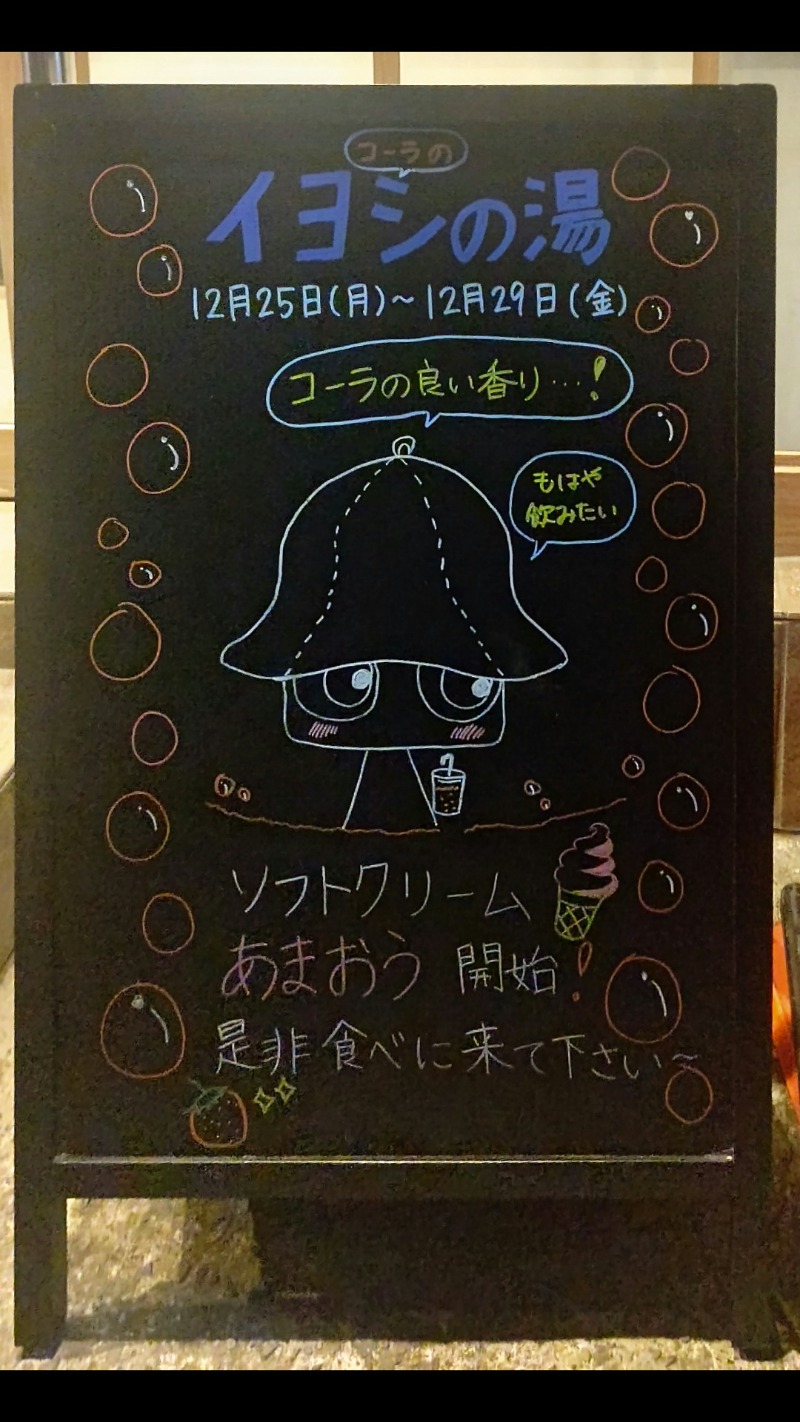 コーラの
イヨシの湯
12月25日(月)~12月29日(金)
コーラの良い香り…!
もはや
飲みたい
ソフトクリーム
あまおう 開始!
是非食べに来て下さい~